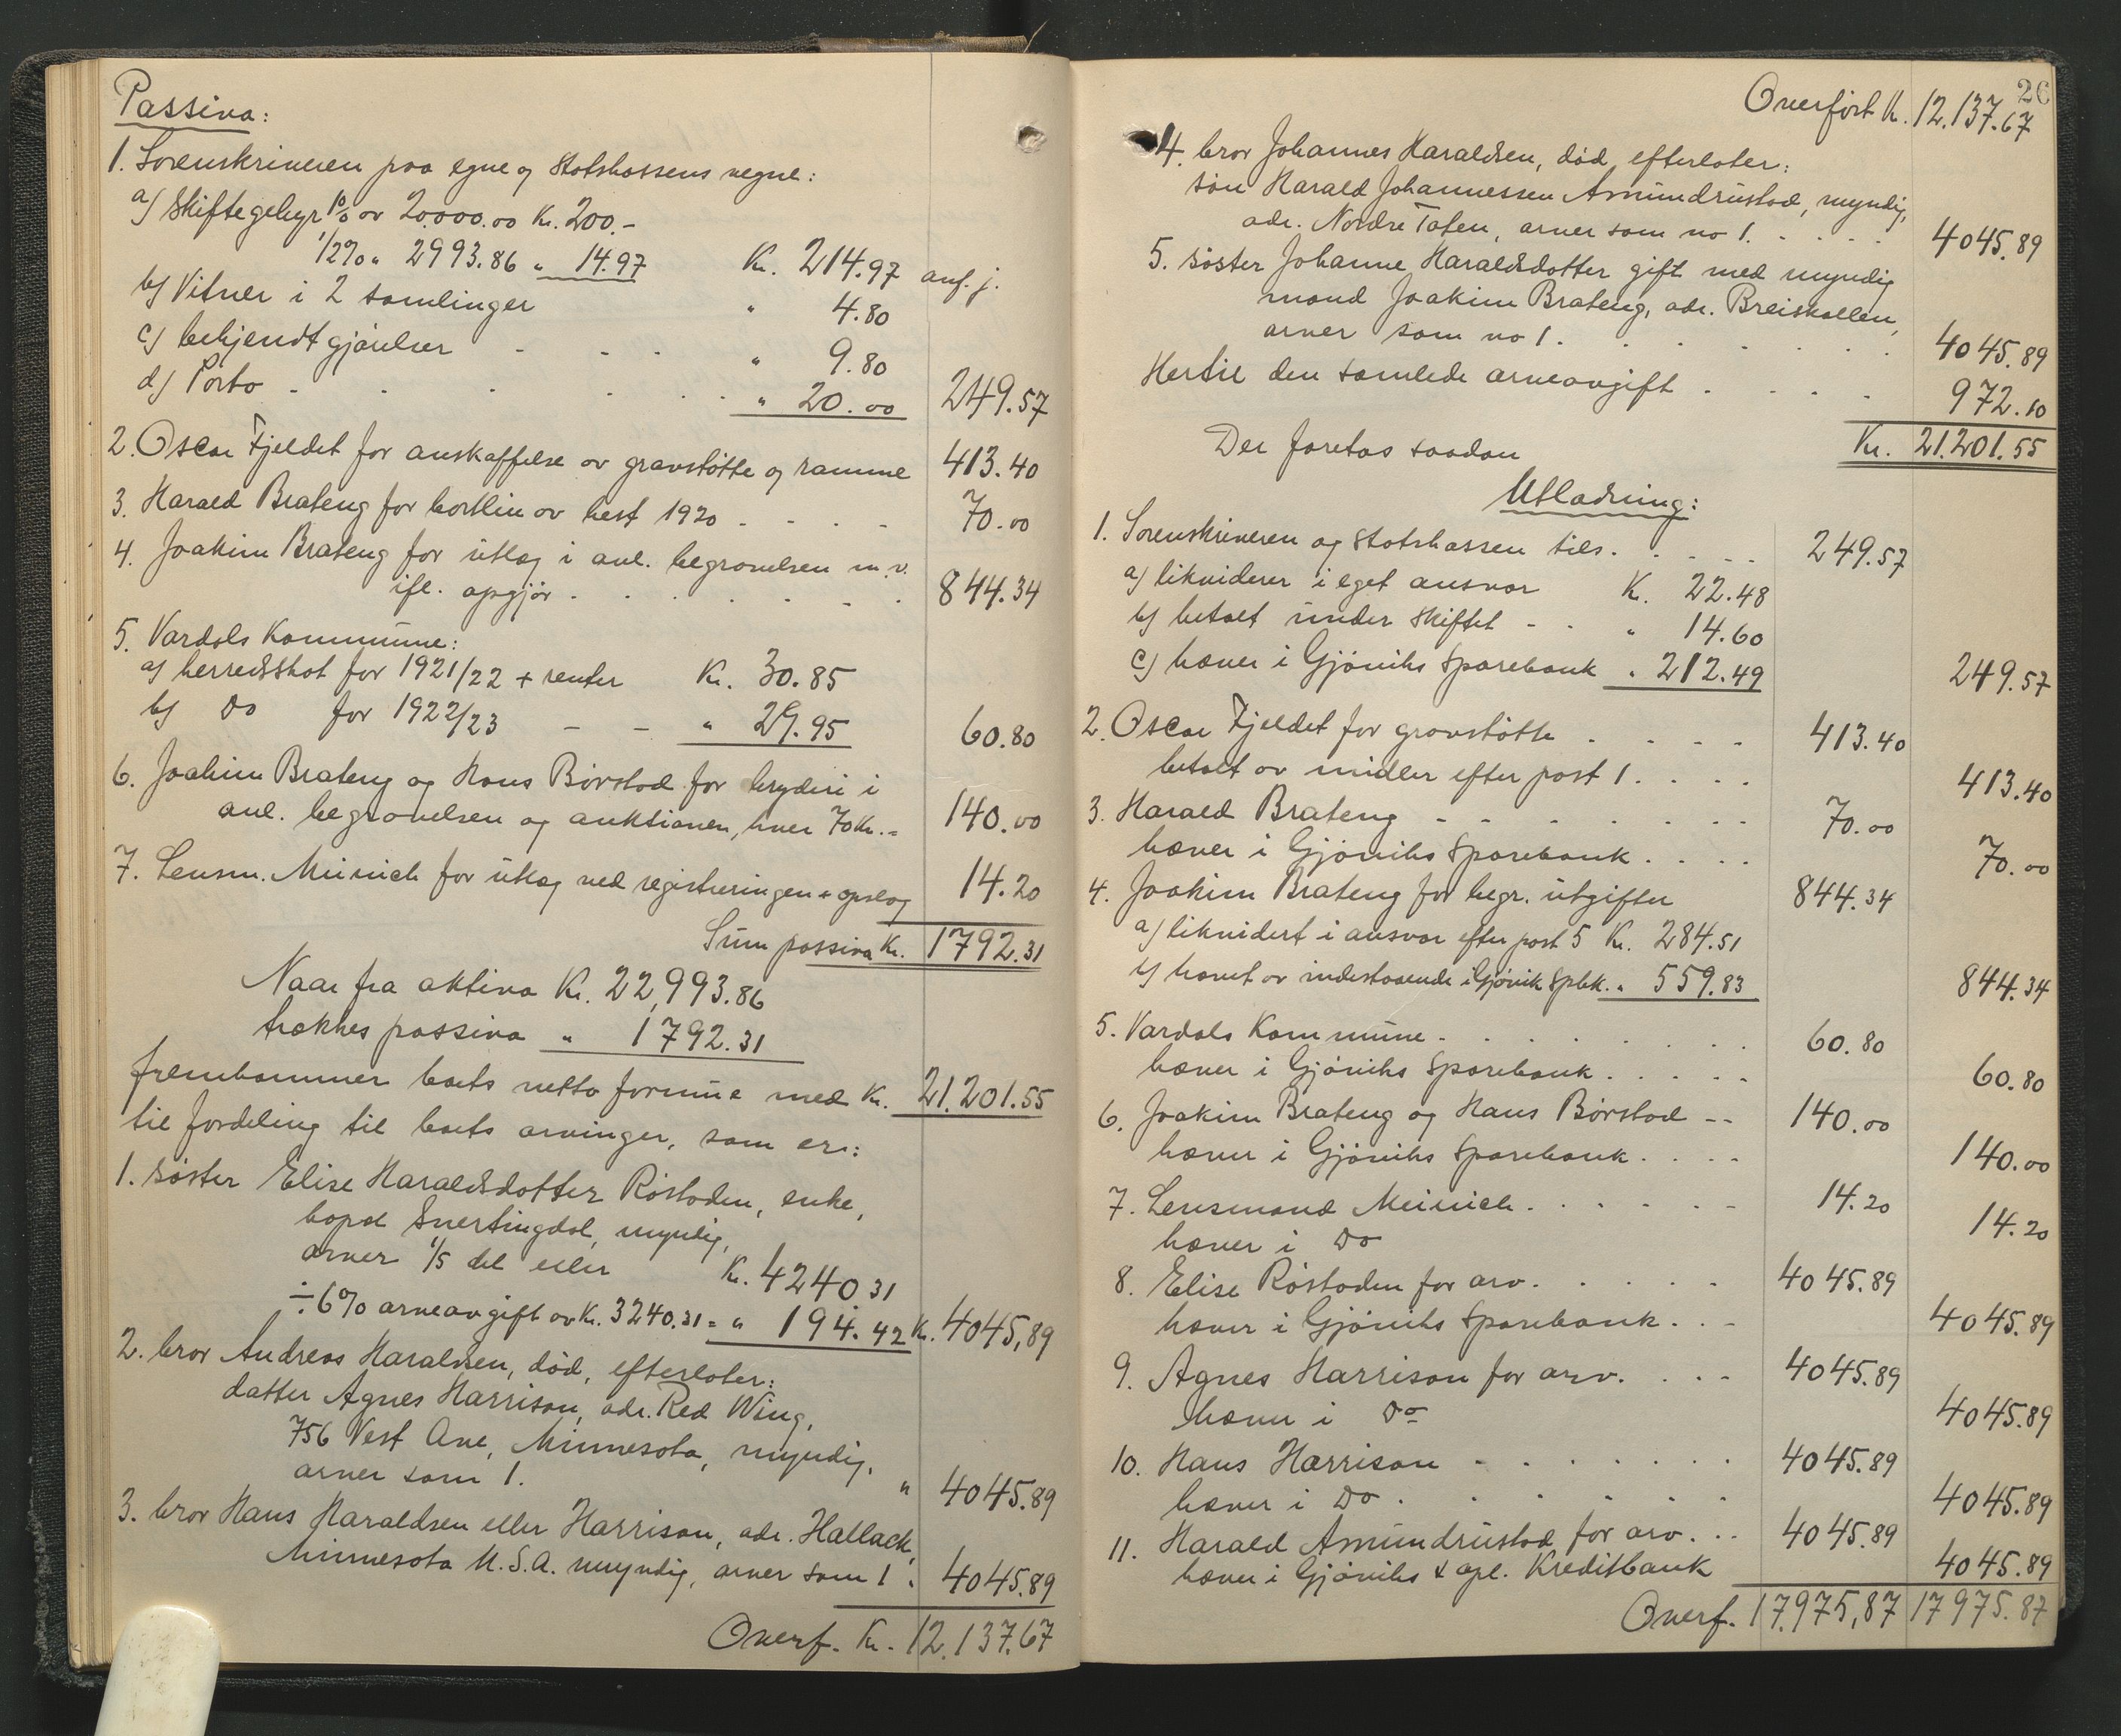 Passiva:
1. Sorenskriveren paa egne og Statskassens vegne:
a) Skiftegebyr 1% av 20000.00 Kr. 200.-
1/2% " 2993.86 " 14.97 Kr. 214.97 anf. j.
b) Vitner i 2 samlinger " 4.80
c) bekjendtgjørelser - - - " 9.80
d) Porto - . . . . " 20.00 249.57
2. Oscar Fjeldet for anskaffelse av gravstøtte og ramme 413.40
3. Harald Brateng for bortlin av hest 1920 - - - - 70.00
4. Joakim Brateng for utlæg i anl. begravelsen m.v.
ifl. opgjør . . . . . . 844.34
5. Vardals Kommune:
a) herredsskat for 1921/22 + renter Kr. 30.85
b) Do for 1922/23 - - " 29.95 60.80
6. Joakim Brateng og Hans Børstad for bryderi i
anl. begravelsen og auktionen, hver 70 Kr. = 140.00
7. Lensm. Meinich for utlæg ved registreringen + opslag 14.20
Sum passiva Kr. 1792.31
Naar fra aktiva Kr. 22,993.86
trækkes passiva " 1792.31
fremkommer boets netto formue med Kr. 21.201.55
til fordeling til boets arvinger, som er:
1. søster Elise Haraldsdatter Røstaden, enke,
bopæl Snertingdal, myndig,
arver 1/5 del eller Kr. 4240.31
÷ 6% arveavgift av Kr. 3240.31 = " 194.42 Kr. 4045,89
2. bror Andreas Haraldsen, død, efterlater:
datter Agnes Harrison, adr. Red Wing,
756 Vest Ave, Minnesota, myndig,
arver som 1. " 4045.89
3. bror Hans Haraldsen eller Harrison, adr. Hallack,
Minnesota U.S.A. myndig, arver som 1 . 4045.89
Overf. Kr. 12.137.67
26
Overført Kr. 12.137.67
4. bror Johannes Haraldsen, død, efterlater:
søn Harald Johannessen Amundrustad, myndig,
adr. Nordre Toten, arver som no 1. - . . . 4045.89
5. søster Johanne Haraldsdatter gift med myndig
mand Joakim Brateng, adr. Breiskallen,
arver som no 1. . . . . . . 4045.89
Hertil den samlede arveavgift . . . . 972.10
Kr. 21.201.55
Der foretas saadan
Utlodning:
1. Sorenskriveren og Statskassen tils. . - - - 249.57
a) likviderer i eget ansvar Kr. 22.48
b) betalt under skiftet - - " 14.60
c) hæver i Gjøviks Sparebank " 212.49 249.57
2. Oscar Fjeldet for gravstøtte . . . . 413.40
betalt av midler efter post 1. . . . 413.40
3. Harald Brateng - - - - - - - 70.00
hæver i Gjøviks Sparebank . . . . 70.00
4. Joakim Brateng for begr. utgifter 844.34
a) likvidert i ansvar efter post 5 Kr. 284.51
b) hævet av indestaaende i Gjøvik Spbk. " 559.83 844.34
5. Vardals Kommune . . . . . . . . 60.80
hæver i Gjøviks Sparebank . . . . . 60.80
6. Joakim Brateng og Hans Børstad -- 140.00
hæver i Gjøviks Sparebank . . . . 140.00
7. Lensmand Meinich . . . . . . 14.20
hæver i Do 14.20
8. Elise Røstaden for arv . . . . . 4045.89
hæver i Gjøviks Sparebank . . - 4045.89
9. Agnes Harrison for arv. . . . 4045.89
hæver i Do 4045.89
10. Hans Harrison - . . . . . . 4045.89
hæver i Do . . . . . . 4045.89
11. Harald Amundrustad for arv. . . 4045.89
hæver i Gjøviks & opl. Kreditbank 4045.89
Overf. 17.975,87 17975.87